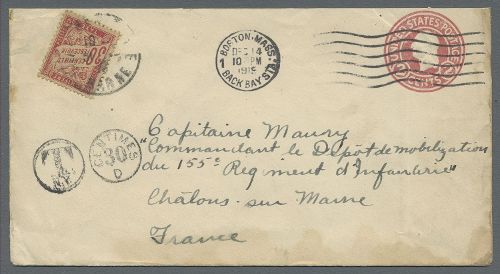 BOSTON. MASS.
DEC 14
10 PM
1919
1
BACK BAY STA.
UNITED STATES POSTAGE
2 CENTS 2
30
CENTIMES
À PERCEVOIR
T
N.Y.
CENTIMES
30
D
Capitaine Maury
"Commandant le Dépôt de mobilization
du 155e Regiment d'Infanterie"
Châlons-sur Marne
France